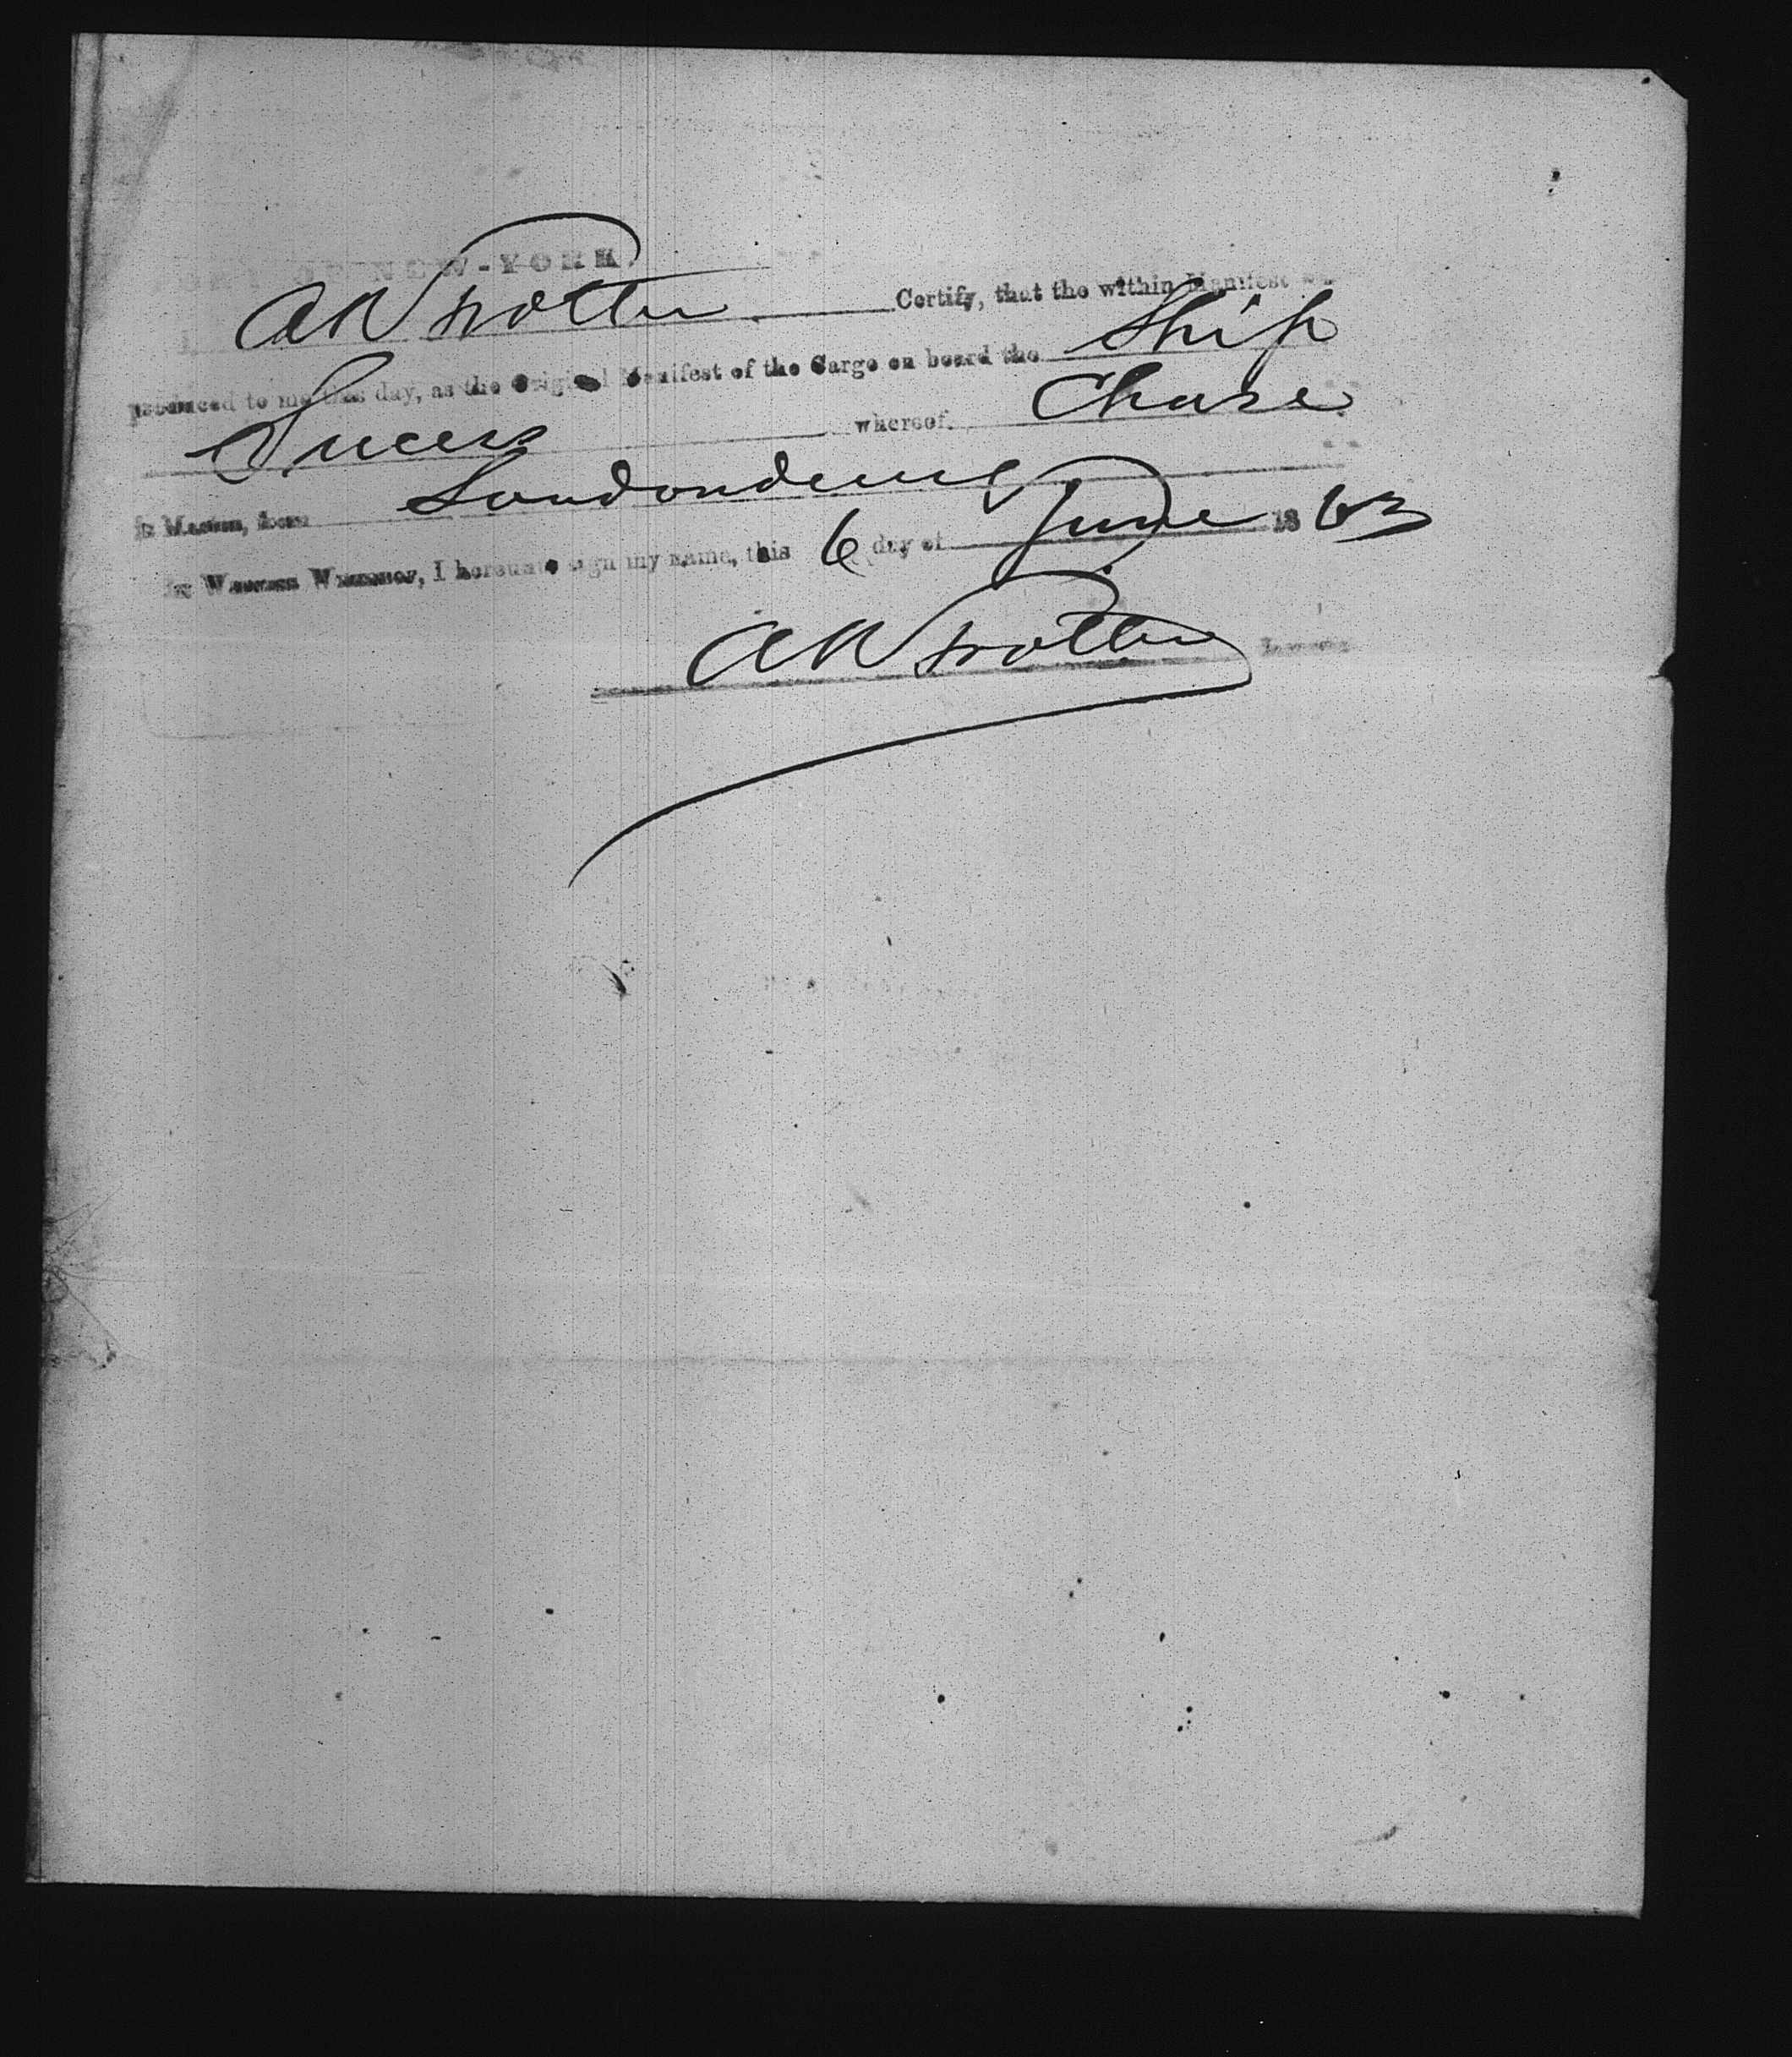 OF NEW-YORK.
A W Trotter Certify, that the within Manifest was
produced to me this day, as the Original Manifest of the Cargo on board the Ship
whereof Chase
is Master, from Londonderry
In Witness Whereof, I hereunto sign my name, this 6 day of June 1863
A W Trotter